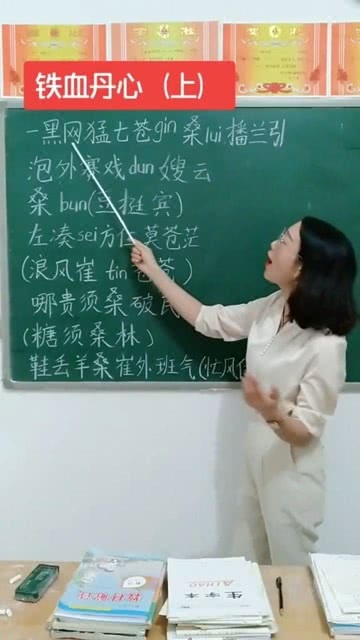 铁血丹心（上）
一黑网猛七苍gin桑lui播兰引
泡外赛戏dun嫂云
桑bun(立挺宾)
左凑sei方但莫苍茫
(浪风崔tin苍苍)
哪贵须桑破民
(糖须桑林)
鞋丢羊桑崔外班气(忙风
教科书
生字本